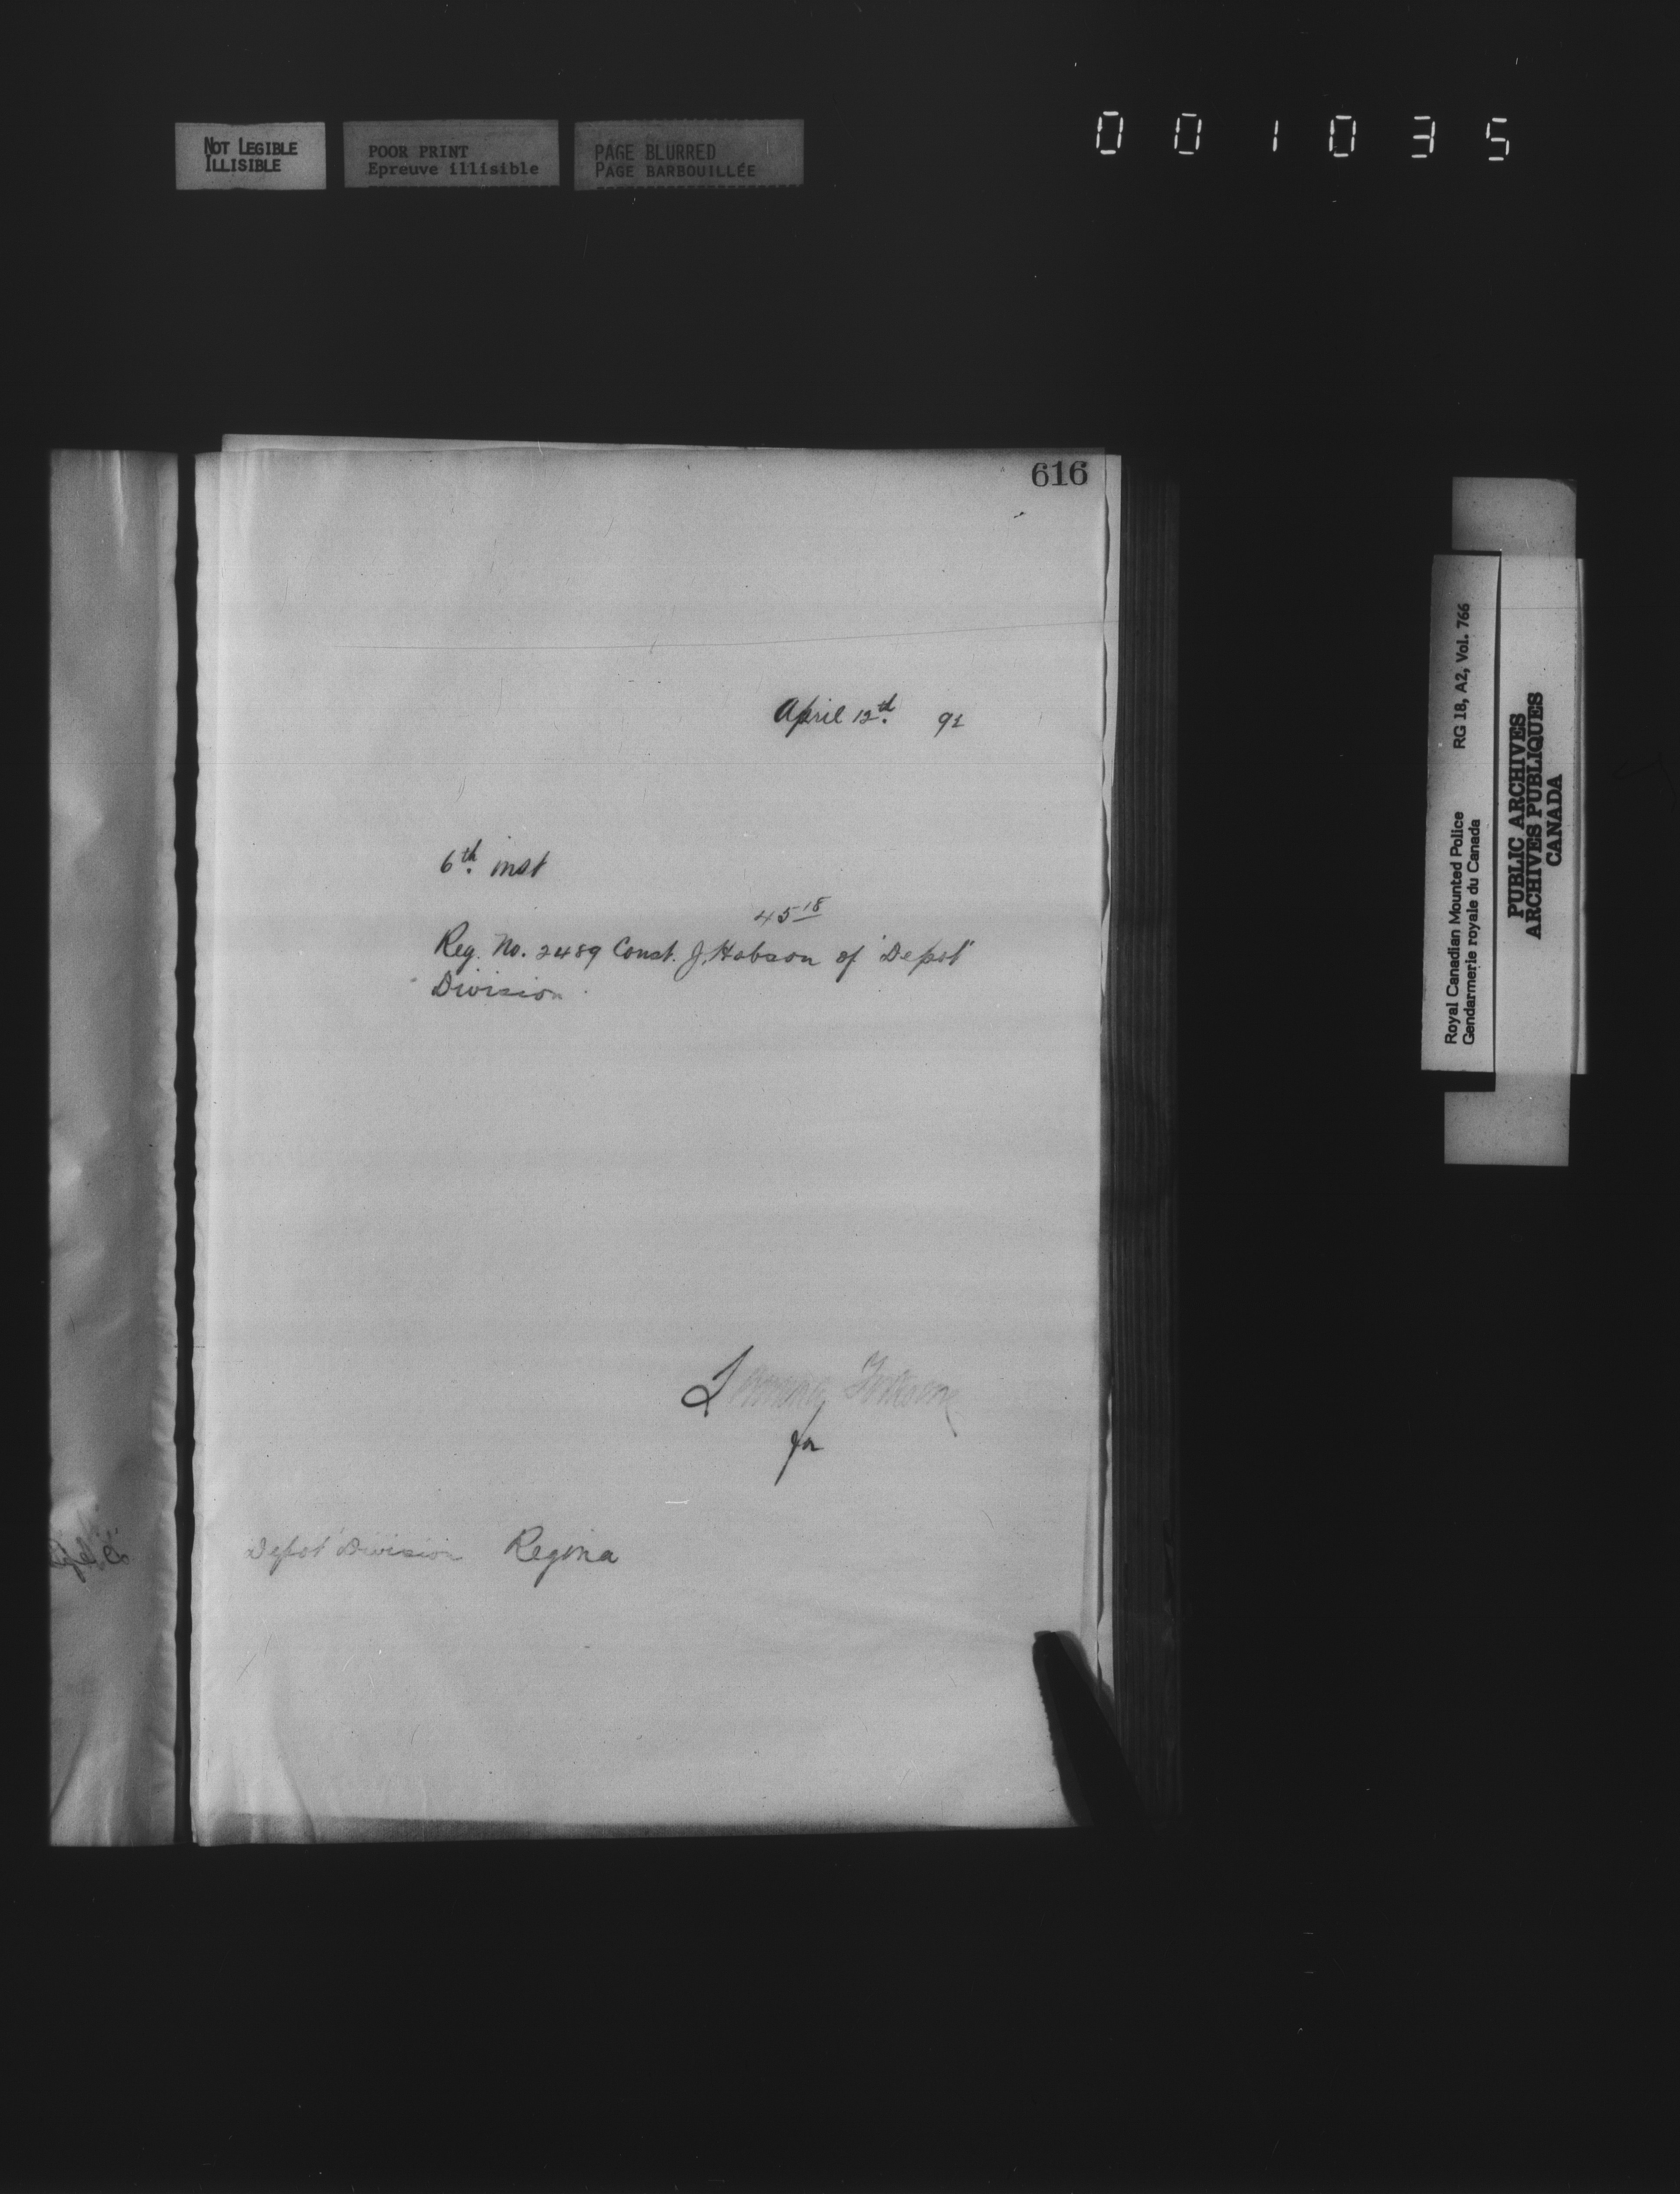 NOT LEGIBLE
ILLISIBLE
POOR PRINT
Epreuve illisible
PAGE BLURRED
PAGE BARBOUILLÉE
001035
616
April 12th. 92
6th. inst
45 18
Reg. No. 2489 Const. J. Hobson of "Depot"
Division
for
Depot Division Regina
Royal Canadian Mounted Police RG 18, A2, Vol. 766
Gendarmerie royale du Canada
PUBLIC ARCHIVES
ARCHIVES PUBLIQUES
CANADA